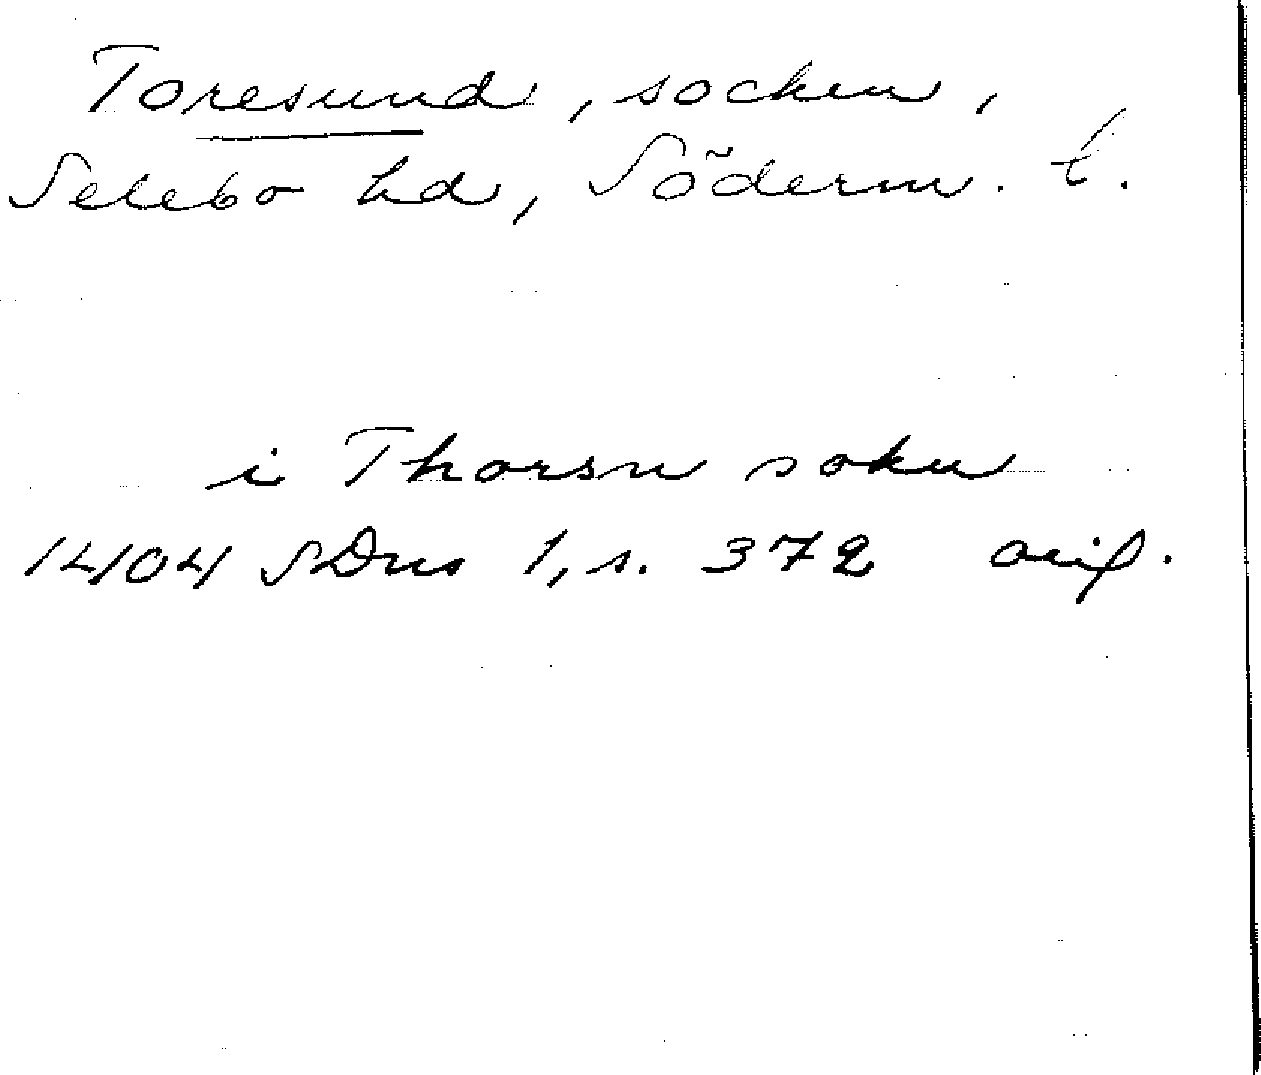 Toresund, socken,
Selebo hd, Söderm. l.
i Thorsn sokn
1404 SDns 1, s. 372 orig.